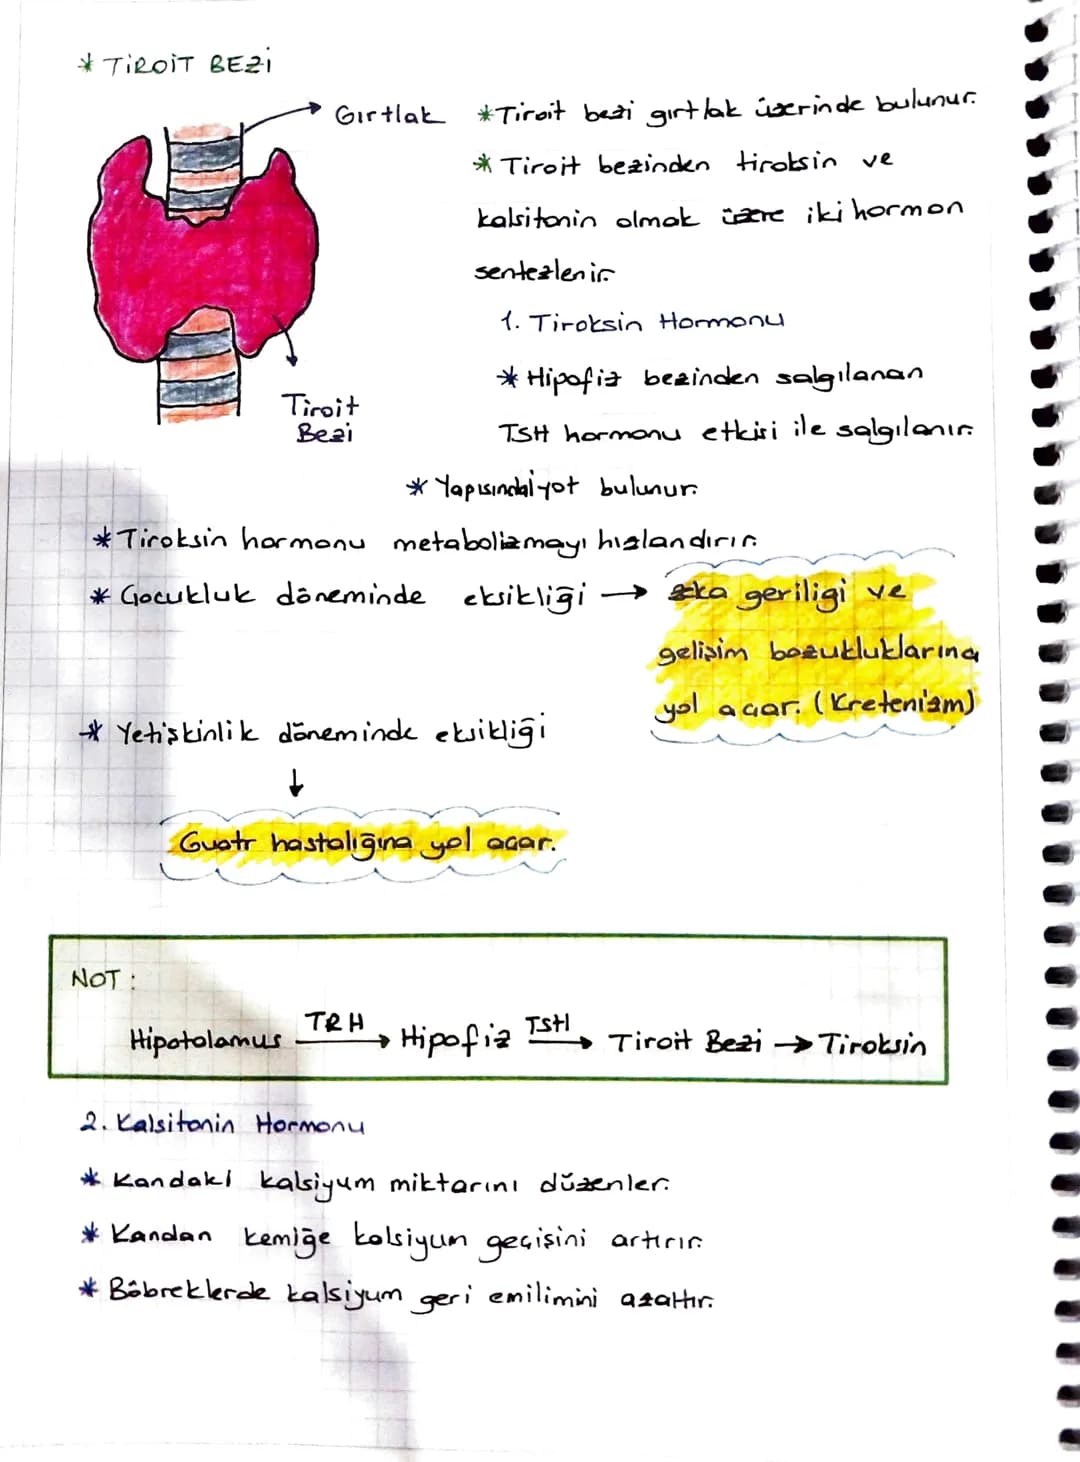 * TİROİT BEZİ
Gırtlak
*Tiroit bezi gırtlak üzerinde bulunur.
* Tiroit bezinden tiroksin ve
kalsitonin olmak üzere iki hormon
sentezlenir.
1. Tiroksin Hormonu
* Hipofiz bezinden salgılanan
TSH hormonu etkisi ile salgılanır.
Tiroit
Bezi
* Yapısındaiyot bulunur.
*Tiroksin hormonu metabolizmayı hızlandırır.
* Çocukluk döneminde eksikliği → zeka geriligi ve
gelişim bozukluklarına
yol açar. (Kretenizm)
* Yetişkinlik döneminde eksikliği
↓
Guatr hastalığına yol açar.
NOT :
Hipotolamus TRH → Hipofiz TSH → Tiroit Bezi → Tiroksin
2. Kalsitonin Hormonu
* Kandaki kalsiyum miktarını düzenler.
* Kandan kemiğe kalsiyum geçişini artırır.
* Böbreklerde kalsiyum geri emilimini azaltır.